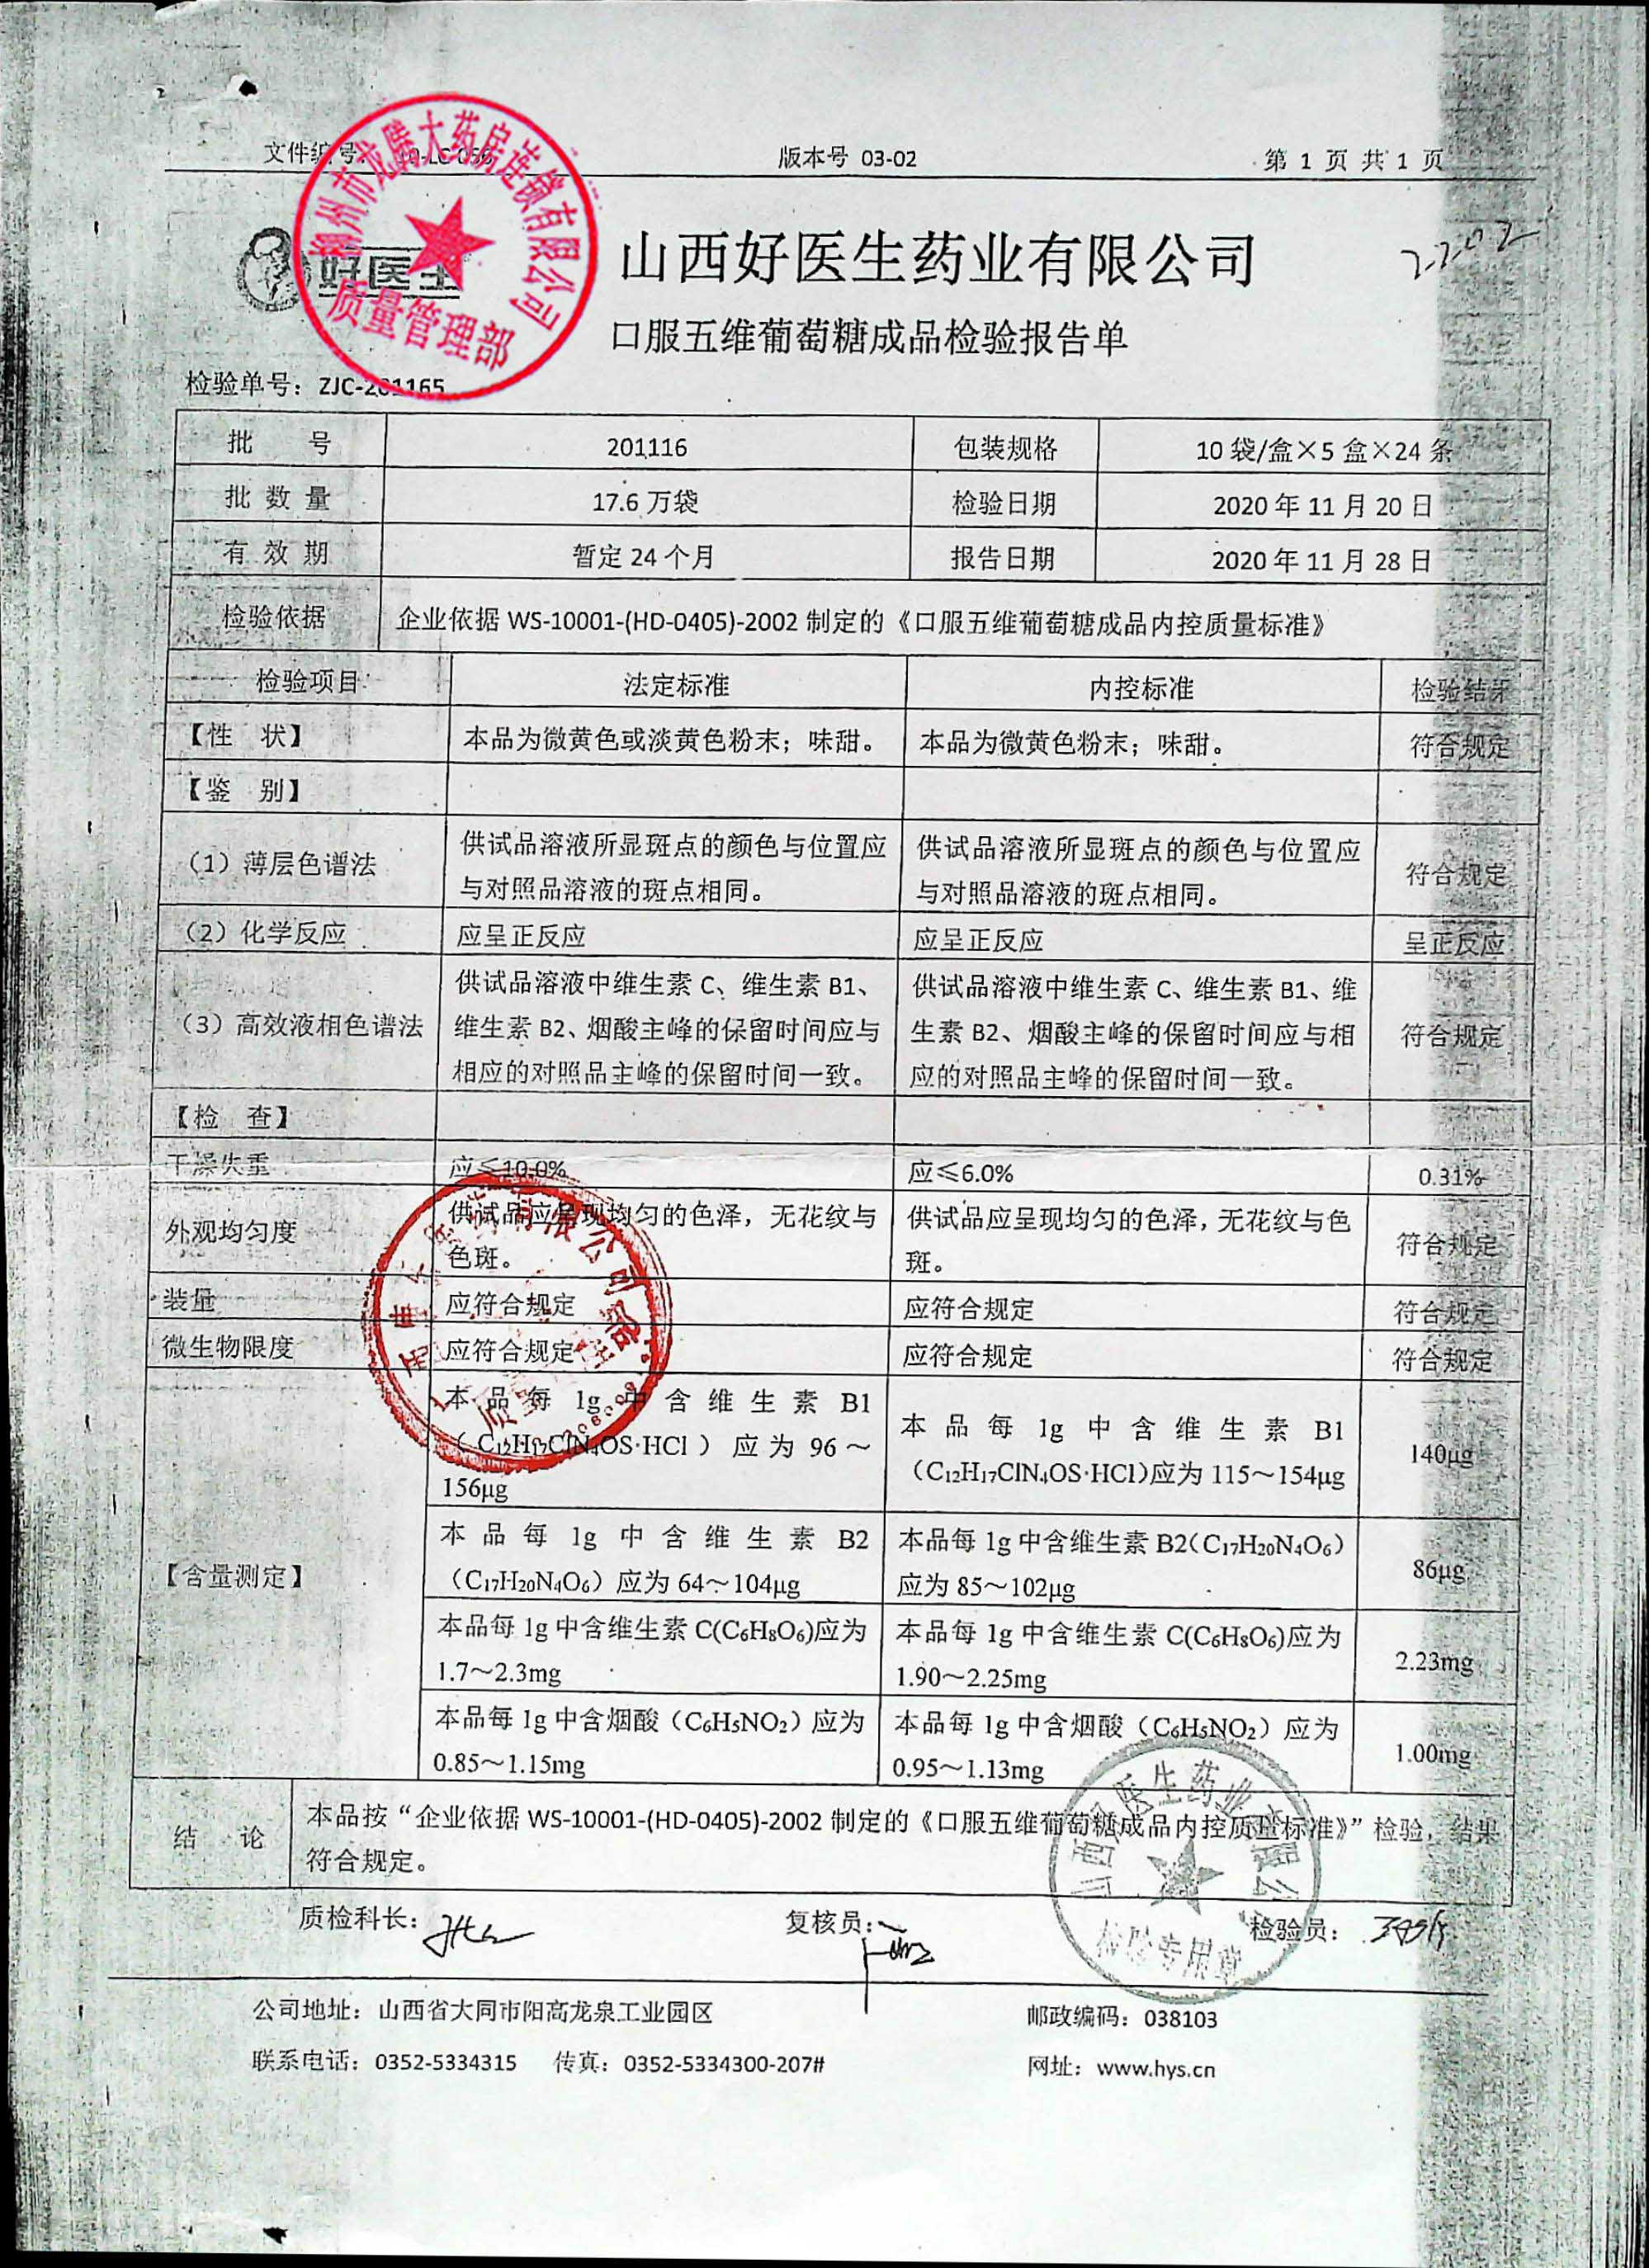 文件编号:
版本号 03-02
第 1 页 共 1 页
潮州市龙腾大药房连锁有限公司
质量管理部
好医生
山西好医生药业有限公司
口服五维葡萄糖成品检验报告单
检验单号：ZJC-201165
批 号 201116 包装规格 10 袋/盒×5 盒×24 条
批 数 量 17.6 万袋 检验日期 2020 年 11 月 20 日
有 效 期 暂定 24 个月 报告日期 2020 年 11 月 28 日
检验依据 企业依据 WS-10001-(HD-0405)-2002 制定的《口服五维葡萄糖成品内控质量标准》
检验项目 法定标准 内控标准 检验结果
【性 状】 本品为微黄色或淡黄色粉末；味甜。 本品为微黄色粉末；味甜。 符合规定
【鉴 别】
（1）薄层色谱法
供试品溶液所显斑点的颜色与位置应
与对照品溶液的斑点相同。
供试品溶液所显斑点的颜色与位置应
与对照品溶液的斑点相同。
符合规定
（2）化学反应 应呈正反应 应呈正反应 呈正反应
（3）高效液相色谱法
供试品溶液中维生素 C、维生素 B1、
维生素 B2、烟酸主峰的保留时间应与
相应的对照品主峰的保留时间一致。
供试品溶液中维生素 C、维生素 B1、维
生素 B2、烟酸主峰的保留时间应与相
应的对照品主峰的保留时间一致。
符合规定
【检 查】
干燥失重 应≤10.0% 应≤6.0% 0.31%
外观均匀度
供试品应呈现均匀的色泽，无花纹与
色斑。
供试品应呈现均匀的色泽，无花纹与色
斑。
符合规定
装量 应符合规定 应符合规定 符合规定
微生物限度 应符合规定 应符合规定 符合规定
【含量测定】
本品每 1g 中含维生素 B1
（C₁₂H₁₇ClN₄OS·HCl）应为 96～
156μg
本品每 1g 中含维生素 B1
（C₁₂H₁₇ClN₄OS·HCl)应为 115～154μg
140μg
本品每 1g 中含维生素 B2
（C₁₇H₂₀N₄O₆）应为 64～104μg
本品每 1g 中含维生素 B2（C₁₇H₂₀N₄O₆）
应为 85～102μg
86μg
本品每 1g 中含维生素 C(C₆H₈O₆)应为
1.7～2.3mg
本品每 1g 中含维生素 C(C₆H₈O₆)应为
1.90～2.25mg
2.23mg
本品每 1g 中含烟酸（C₆H₅NO₂）应为
0.85～1.15mg
本品每 1g 中含烟酸（C₆H₅NO₂）应为
0.95～1.13mg
1.00mg
结 论
本品按“企业依据 WS-10001-(HD-0405)-2002 制定的《口服五维葡萄糖成品内控质量标准》”检验，结果
符合规定。
山西好医生药业有限公
检验专用章
质检科长：
复核员：
检验员：
公司地址：山西省大同市阳高龙泉工业园区
邮政编码：038103
联系电话：0352-5334315 传真：0352-5334300-207#
网址：www.hys.cn